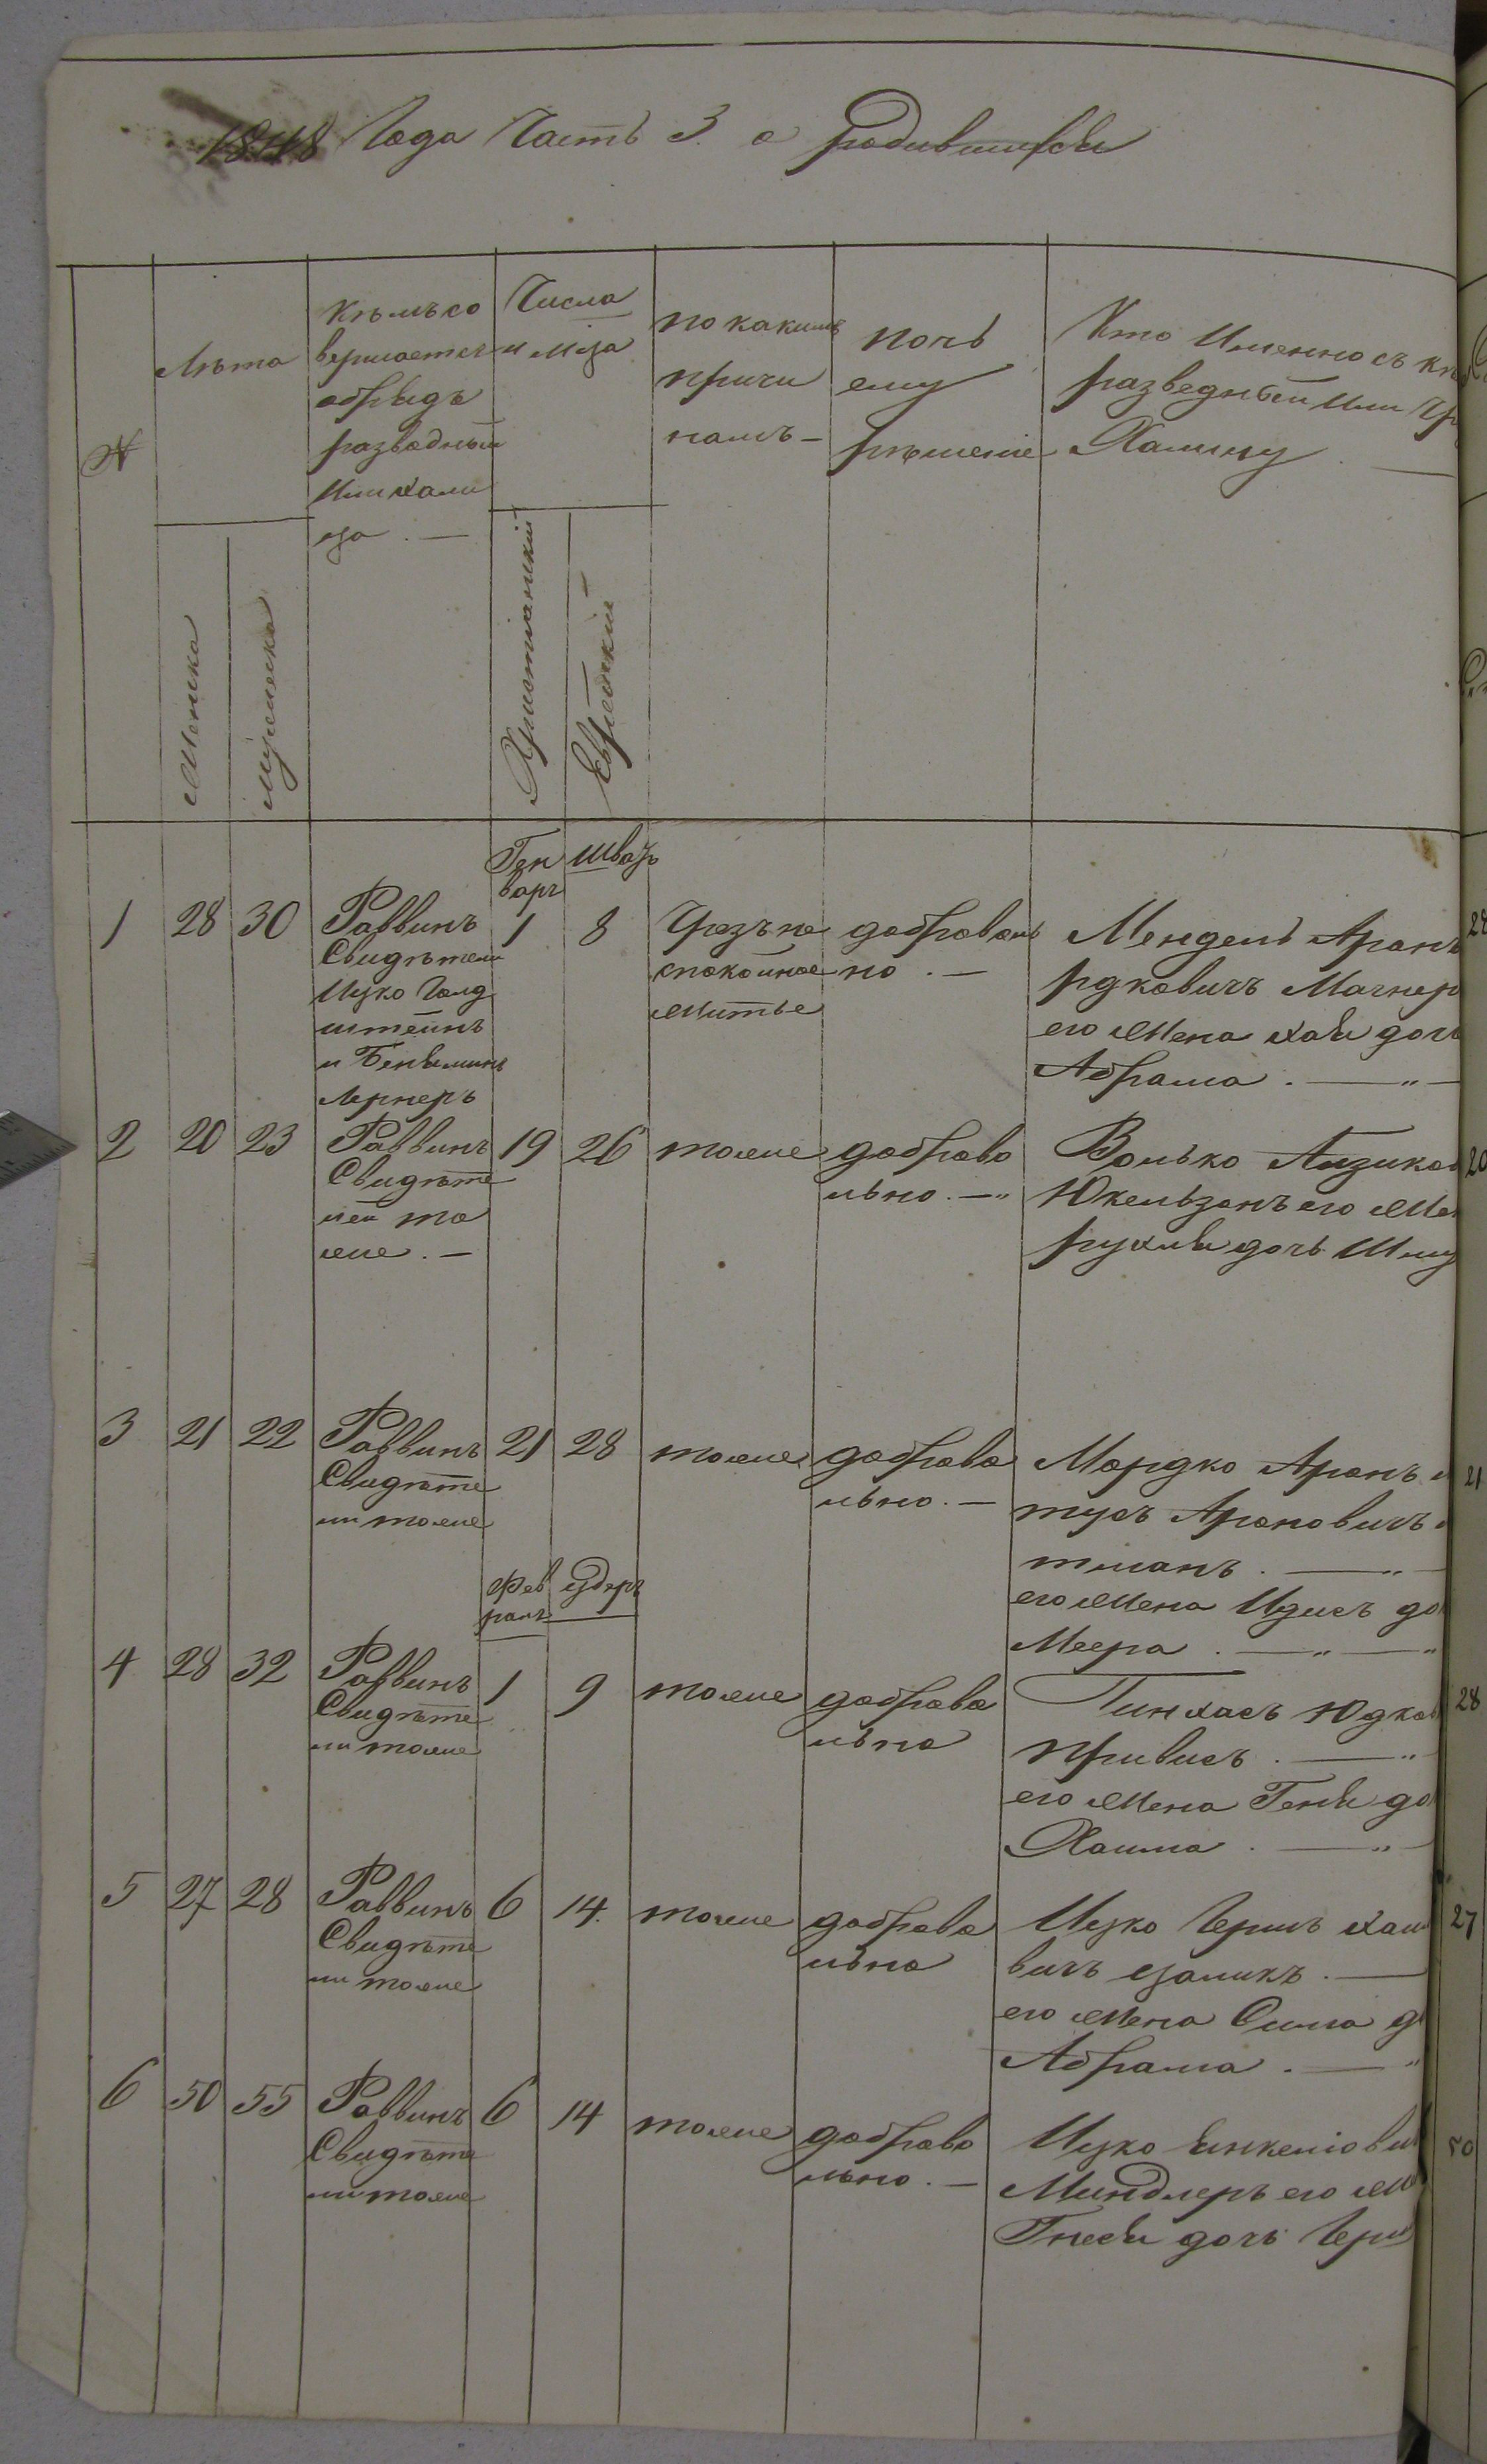 1848 Года Часть 3. о родившихся
№
Лѣта
Женска
Мужеска
Кѣмъ со
вершается
обрядъ
разводный
Или хали
ца . —
Числа
и мца
Христианский
Еврейский
по каким
причи
намъ —
почь
ему
рѣшение
Кто Именно съ кѣ
разведный Или
Халицу . —
Ген
варь
шватъ
1 28 30
Раввинъ
Свидѣтели
Ицко Голд
штейнъ
и Бенямин
Лернеръ
1 8
Чрезъ не
спокойное
житье
доброволь
но . —
Мендель Аронъ
рдковичъ Магнер
его Жена хая доч
Абрама . — " —
2 20 23
Раввинъ
Свидѣте
лей то
же . —
19 26
тоже
доброво
льно . — "
Волько Айзиков
Юкельзонъ его Же
рухля дочь Шму
3 21 22
Раввинъ
Свидѣте
ли тоже
21 28
тоже
доброво
льно . —
Мордко Аронъ
тусъ Ароновичъ
тманъ . — " —
его Жена Идись до
Меера . — " — "
Фев
раль
4 28 32
Раввинъ
Свидѣте
ли тоже
1 9
тоже
доброво
льно
Пинхасъ Юдков
Привись . — "
его Жена Геня до
Хаима . — " —
5 27 28
Раввинъ
Свидѣте
ли тоже
6 14.
тоже
доброво
льно
Ицко Герш хаи
вичъ цаликъ . —
его Жена Сима д
Абрама . — "
6 50 55
Раввинъ
Свидѣте
ли тоже
6 14
тоже
доброво
льно . —
Ицко Янкеліови
Миндлеръ его Же
Гнеся дочь Герш
20
21
28
27
50